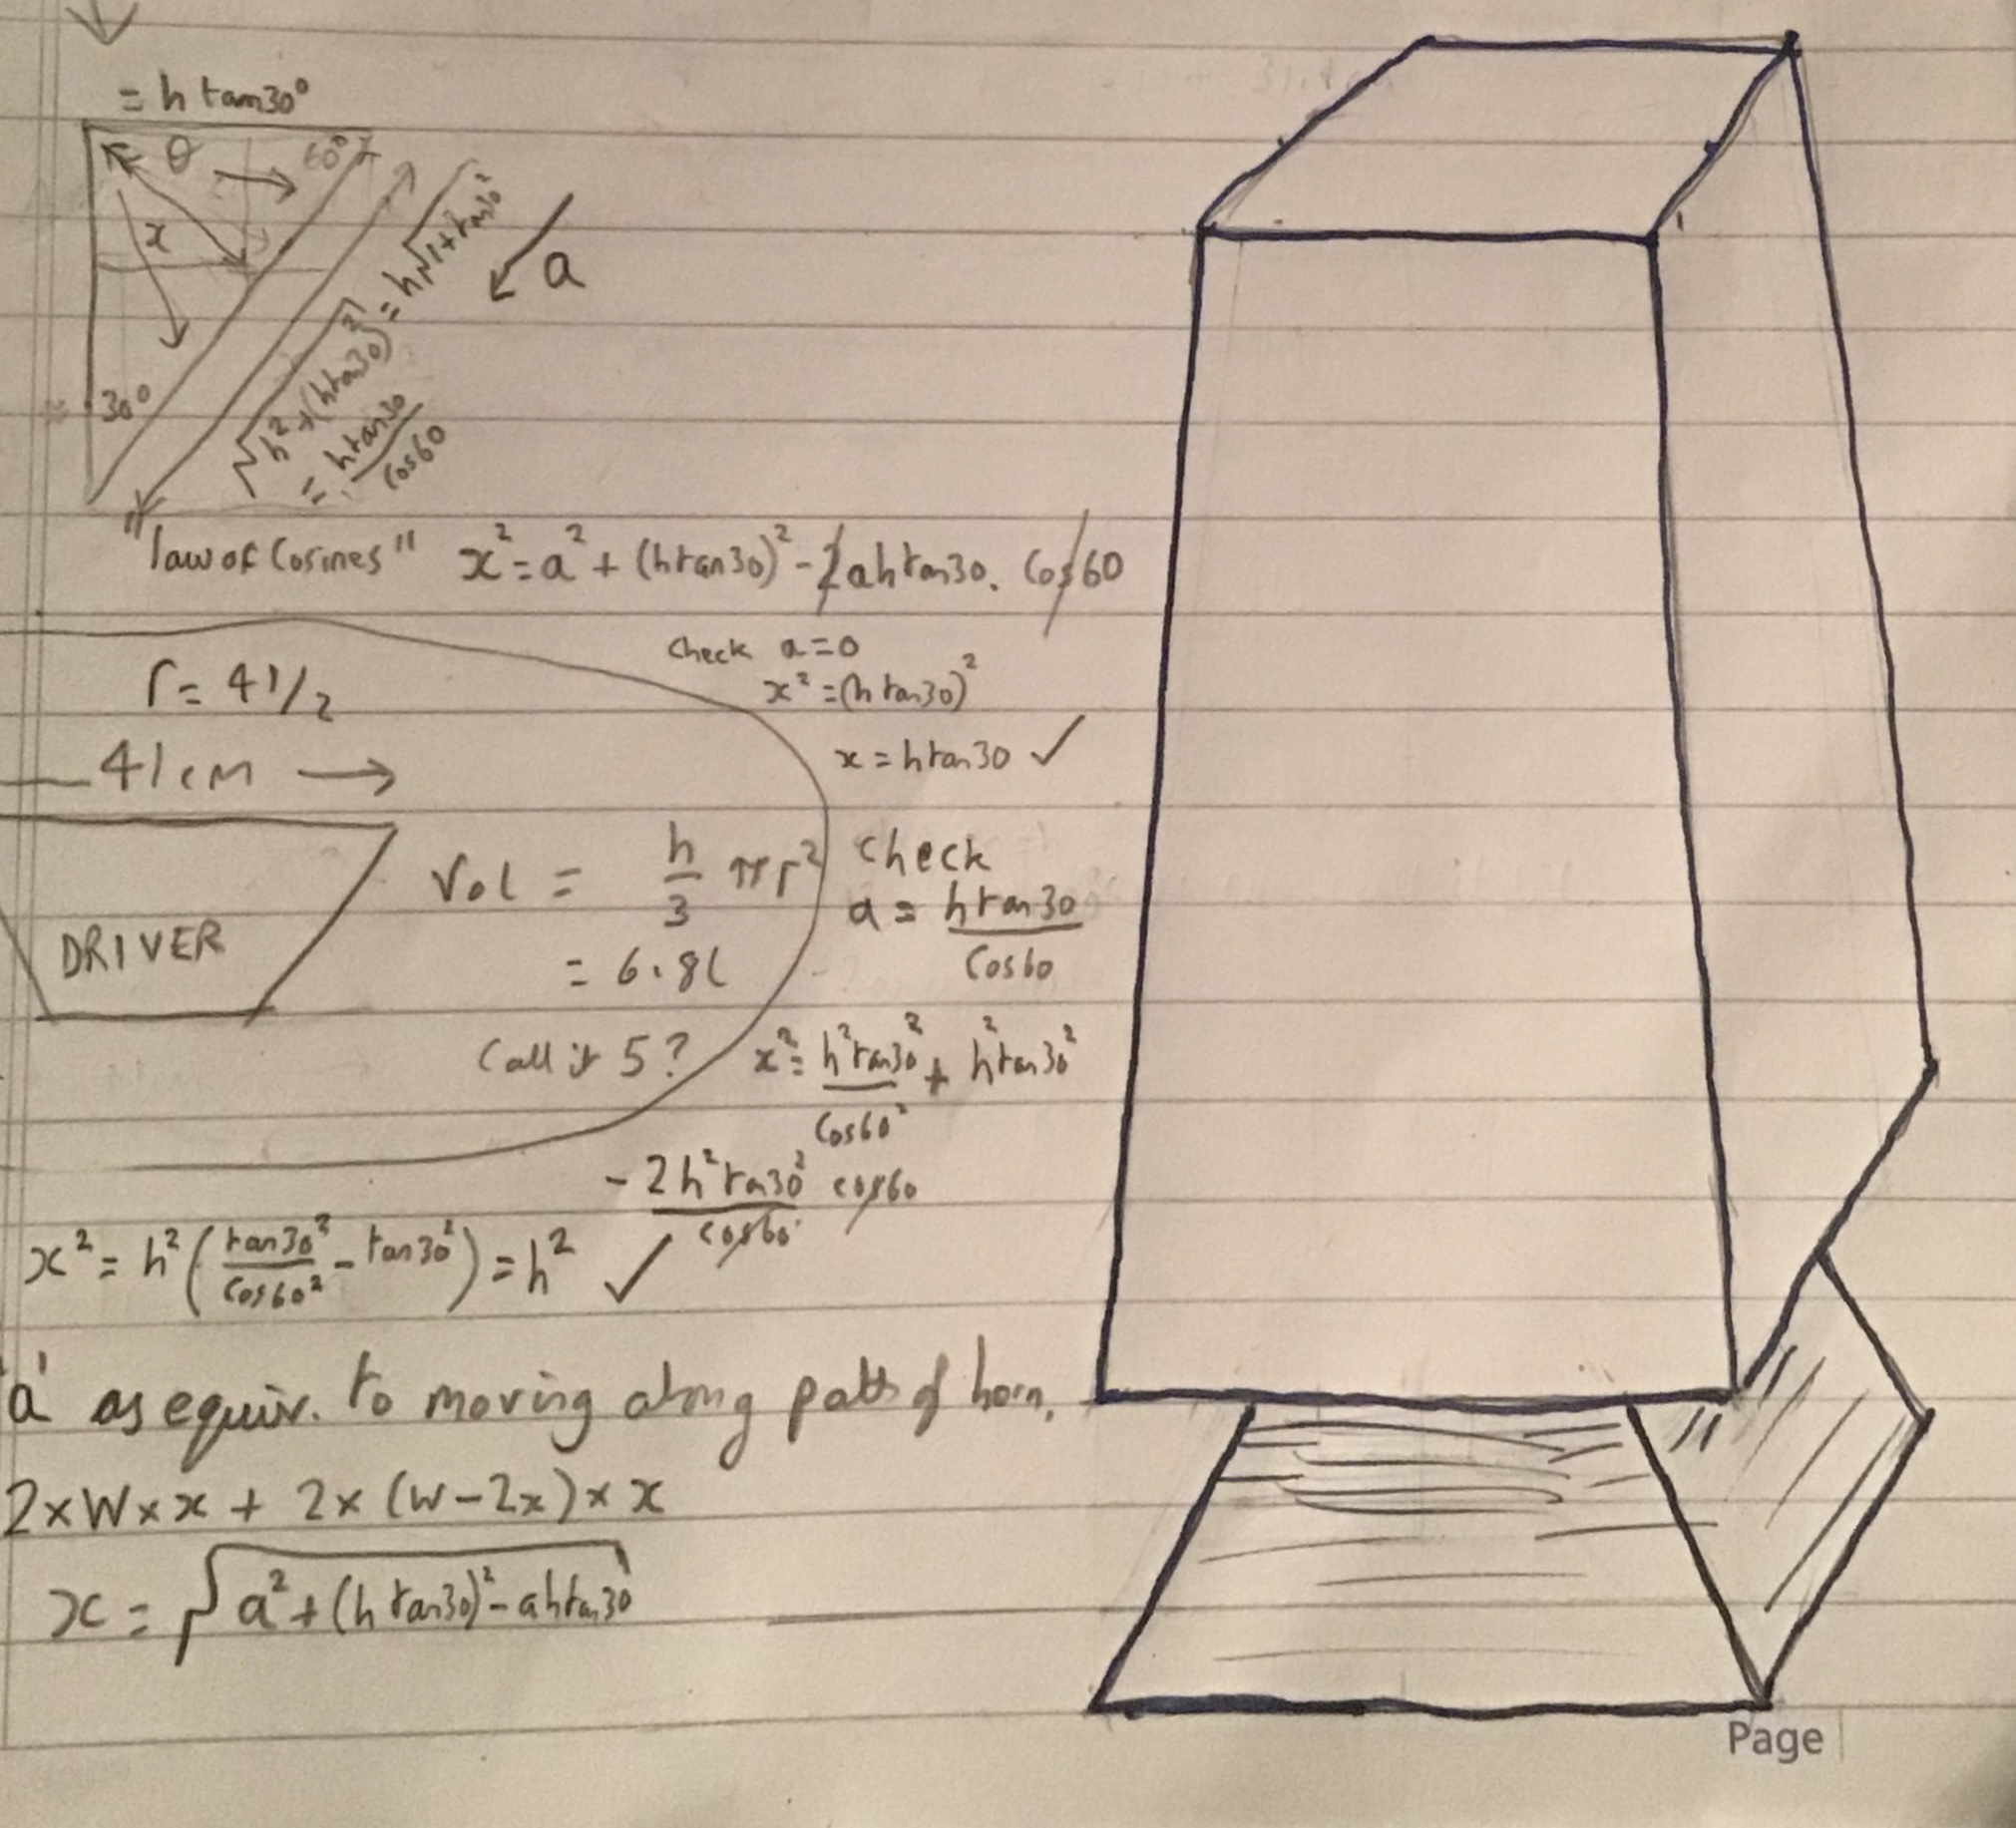 = h tan30°
θ 60°
x
30°
a
√h² + (h tan30)² = h√1 + tan30²
= h tan30 / cos60
"law of Cosines" x² = a² + (h tan30)² - 2 a h tan30 . Cos60
check a = 0
x² = (h tan30)²
x = h tan30 ✓
r = 41/2
41cm →
DRIVER
Vol = h/3 πr²
= 6.8l
Call it 5?
check
a = h tan30 / Cos60
x² = h² tan30² / Cos60² + h² tan30²
- 2h² tan30² cos60 / cos60
x² = h² (tan30² / Cos60² - tan30²) = h² ✓
'a' as equiv. to moving along path of horn.
2 x W x x + 2 x (W - 2x) x x
x = √a² + (h tan30)² - a h tan30
Page